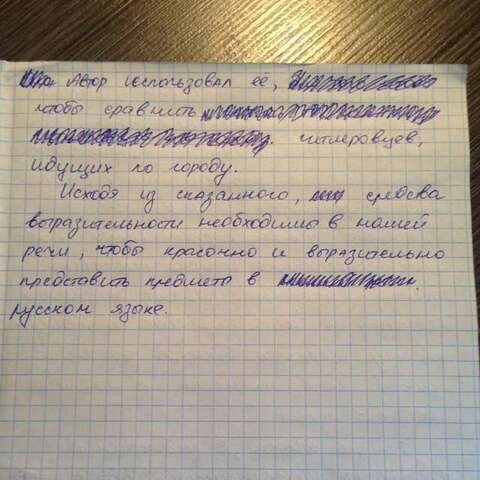 Автор использовал её,
чтобы сравнить
гитлеровцев,
идущих по городу.
Исходя из сказанного, средства
выразительности необходимы в нашей
речи, чтобы красочно и выразительно
представить предметы в
русском языке.